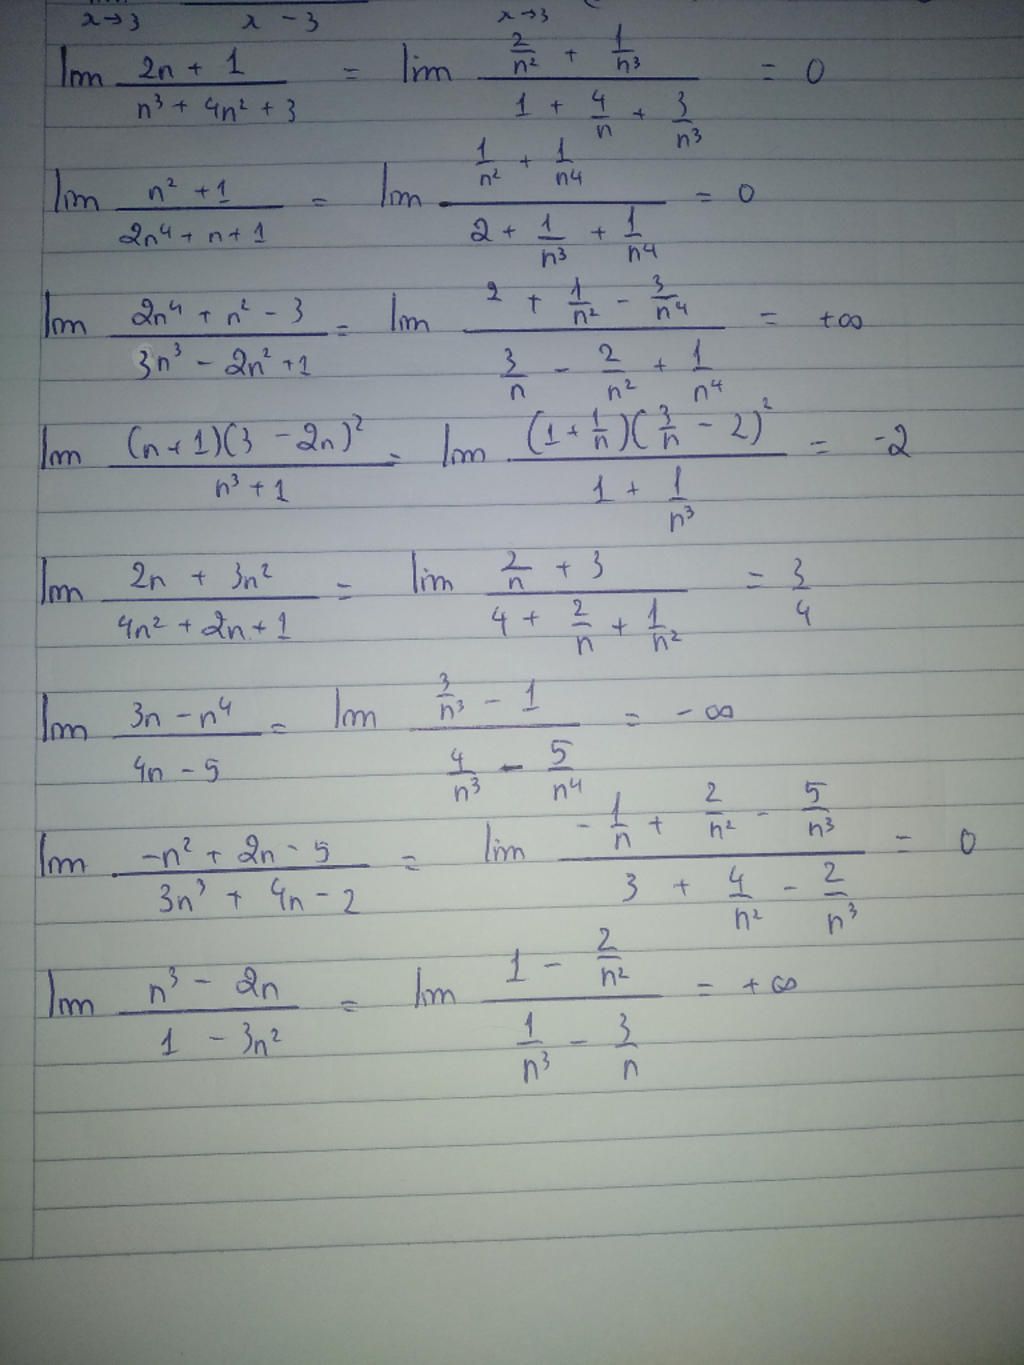 x→3 x - 3 x→3
lim (2n + 1)/(n³ + 4n² + 3) = lim (2/n² + 1/n³)/(1 + 4/n + 3/n³) = 0
lim (n² + 1)/(2n⁴ + n + 1) = lim (1/n² + 1/n⁴)/(2 + 1/n³ + 1/n⁴) = 0
lim (2n⁴ + n² - 3)/(3n³ - 2n² + 1) = lim (2 + 1/n² - 3/n⁴)/(3/n - 2/n² + 1/n⁴) = +∞
lim ((n + 1)(3 - 2n)²)/(n³ + 1) = lim ((1 + 1/n)(3/n - 2)²)/(1 + 1/n³) = -2
lim (2n + 3n²)/(4n² + 2n + 1) = lim (2/n + 3)/(4 + 2/n + 1/n²) = 3/4
lim (3n - n⁴)/(4n - 5) = lim (3/n³ - 1)/(4/n³ - 5/n⁴) = -∞
lim (-n² + 2n - 5)/(3n³ + 4n - 2) = lim (-1/n + 2/n² - 5/n³)/(3 + 4/n² - 2/n³) = 0
lim (n³ - 2n)/(1 - 3n²) = lim (1 - 2/n²)/(1/n³ - 3/n) = +∞